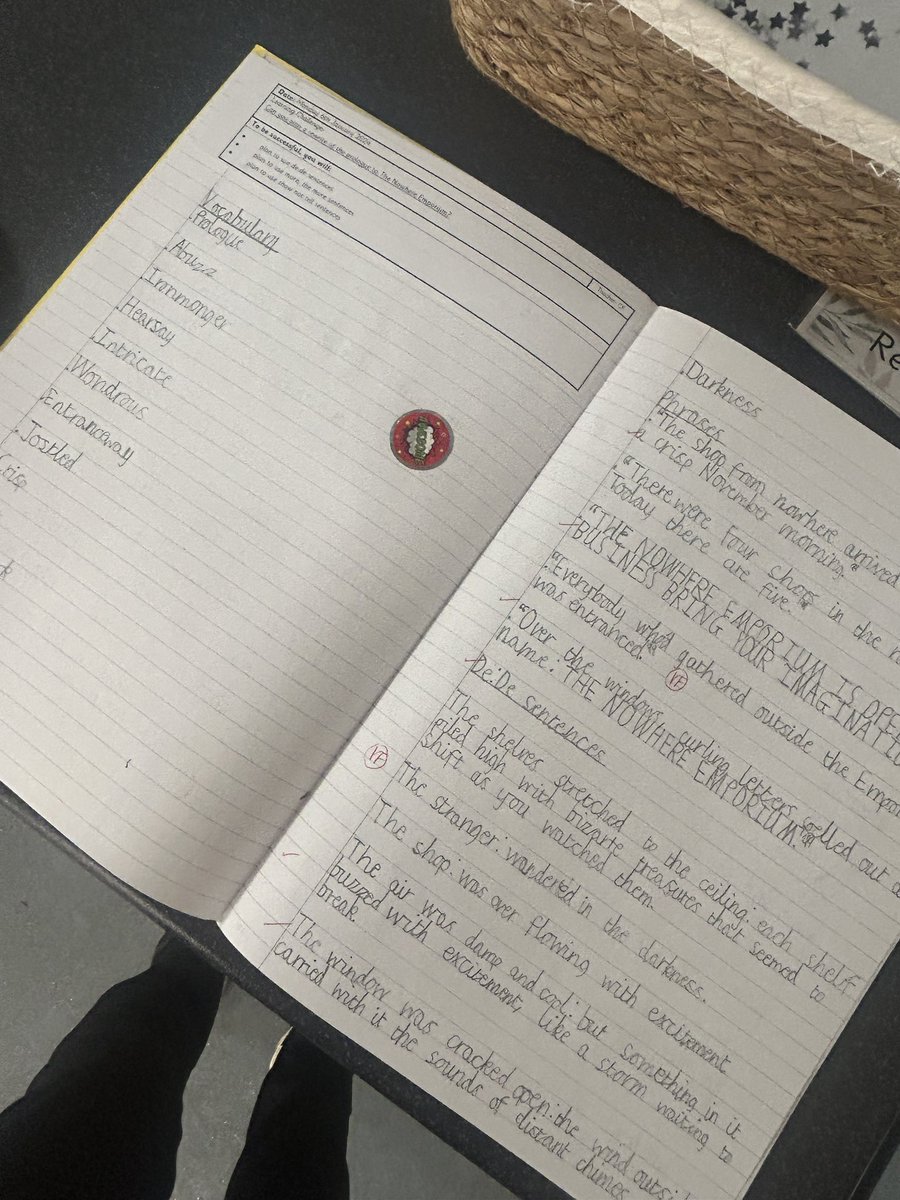 Date: Monday 6th January 2025
Learning Challenge:
Can you plan a rewrite of the prologue to The Nowhere Emporium?
To be successful, you will:
plan to use de:de sentences
plan to use more, the more sentences
plan to use show not tell sentences
Teacher
Vocabulary
Prologue
Abuzz
Ironmonger
Hearsay
Intricate
Wondrous
Entranceway
Jostled
Crisp
Darkness
Phrases
"The shop from nowhere arrived
a crisp November morning."
"There were four shops in the
Today there are five."
"THE NOWHERE EMPORIUM IS OPEN
BUSINESS BRING YOUR IMAGINATIO
"Everybody who gathered outside the Empor
was entranced."
VF
"Over the window, curling letters spelled out
name: THE NOWHERE EMPORIUM."
De:De sentences
The shelves stretched to the ceiling: each shelf
piled high with bizarre treasures that seemed to
shift as you watched them.
VF
The stranger: wandered in the darkness.
The shop: was over flowing with excitement
The air was damp and cool: but something in it
buzzed with excitement, like a storm waiting to
break.
The window was cracked open: the wind outsi
carried with it the sounds of distant chimes
Re